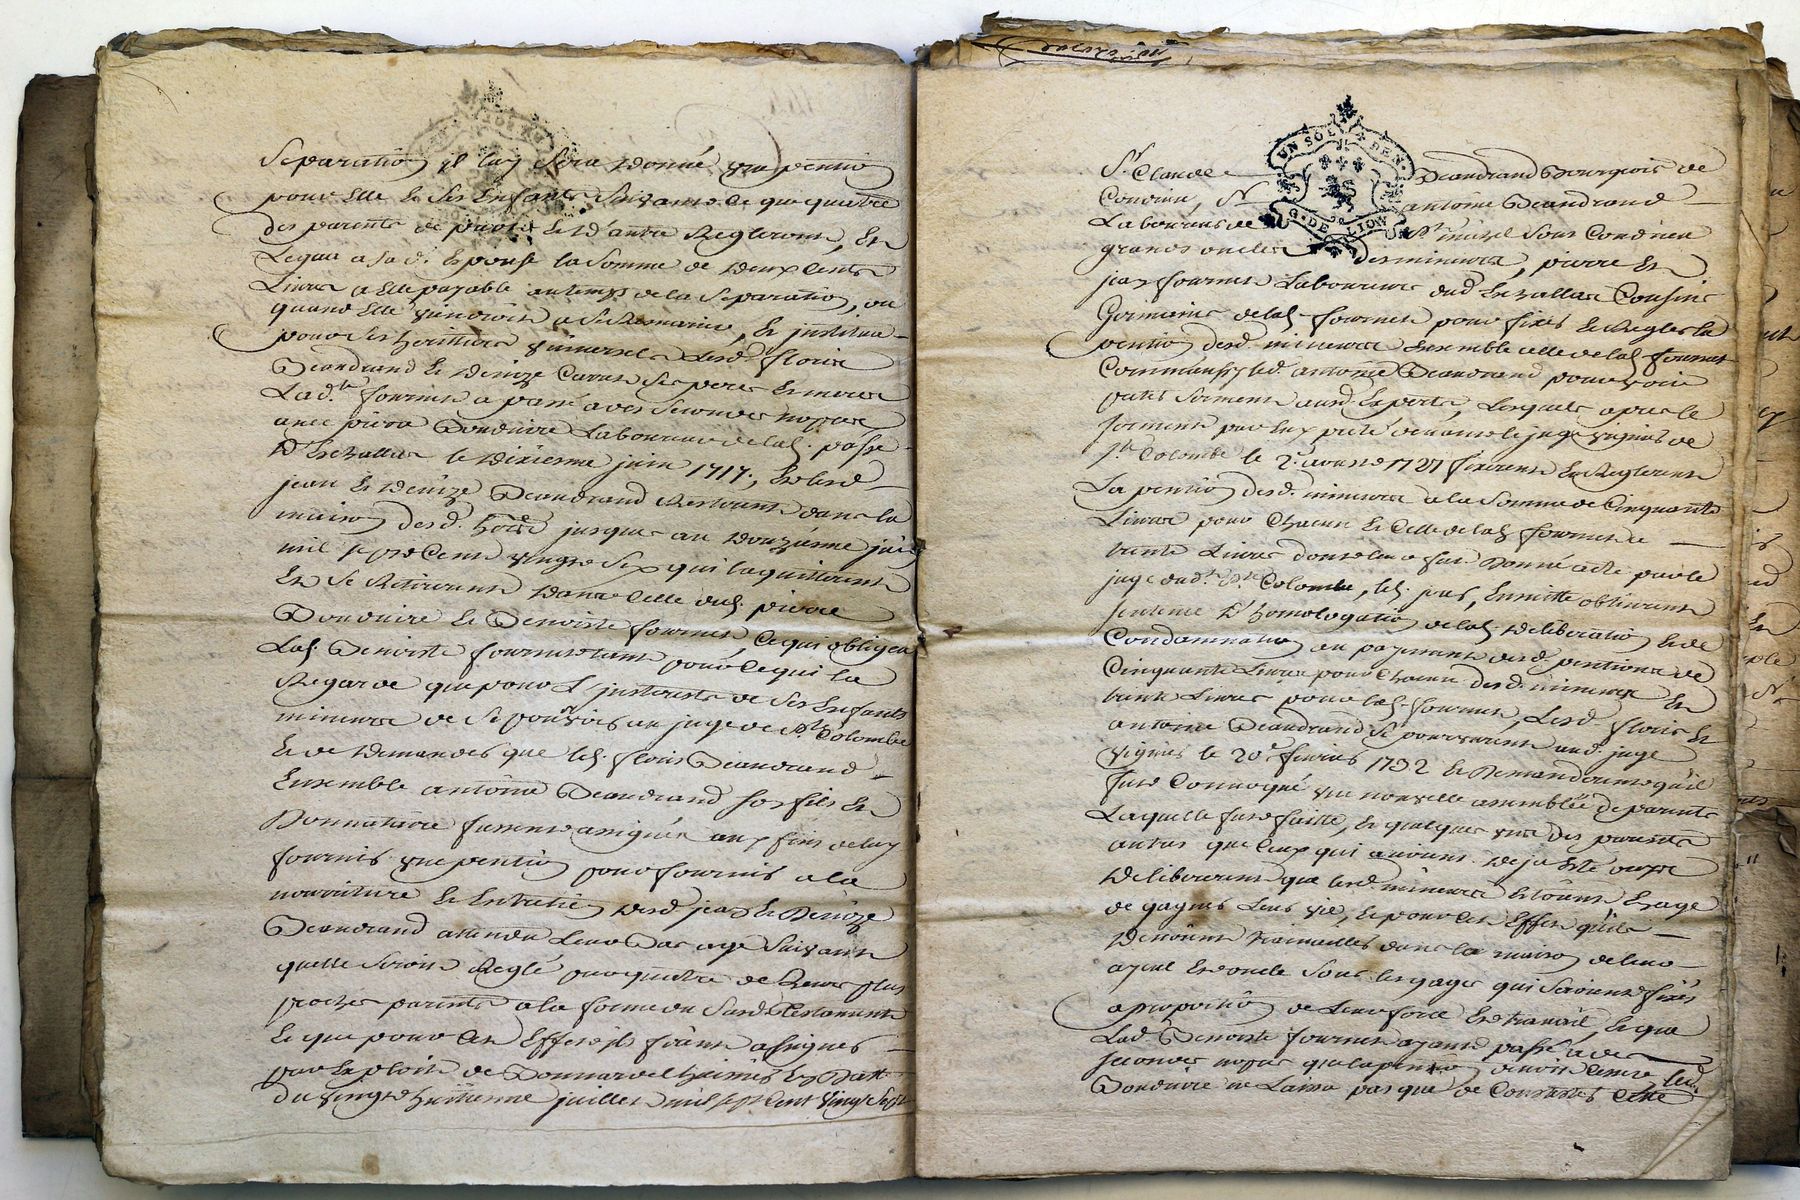 Separation il luy sera donné une pention
pour Elle et ses Enfants suivant ce que quatre
des parents de part et d'autre Regleront, Et
Legue a sad. Epouse la somme de deux Cents
Livres a Elle payable au temps de la Separation, ou
quand Elle viendroit a se Remarier, Et institue
pour ses heritiers universels lesd. floris
Deandrand et Denize ses pere et mere
Lad.te fournet a passé a des secondes nopces
avec pierre Bonduire Laboureur de la
d'Envallas le dixieme juin 1717, Et lesd.
jean et Denize Deandrand Resterent dans la
maison desd. jusques au douzieme
mil sept Cent vingt six qui la quitterent
Et se Retirerent dans Celle dud. pierre
Bonduire et Benoiste fournet, Ce qui obligea
Lad. Benoiste fournet tant pour Ce qui la
Regarde que pour L'interest de ses Enfants
mineurs de se pourvoir au juge de Ste Colombe
Et de demander que led. floris Deandrand
Ensemble antoine Deandrand son fils Et
Donnataire fussent assignés aux fins de luy
fournir une pention pour fournir a la
nourriture et Entretien desd. jean et Denize
Deandrand attendu Leur Bas age suivant
quelle seroit Reglé par quatre de Leurs plus
proches parents a la forme du susd. Testament
Et que pour Cet Effet ils furent assignés
par Exploit de Bonnardel huissier En Datte
du vingt huitieme juillet mil sept Cent vingt sept
Sr. Claude Deandrand Bourgeois de
Condrieu, Sr. antoine Deandrand
Laboureur de St. michel sous Condrieu
grands oncles des mineurs, pierre Et
jean fournet Laboureurs dud. Envallas Cousins
Germains de lad. fournet pour fixer et Regler la
pention desd. mineurs Ensemble celle de lad. fournet
Comme aussy led. antoine Deandrand pour voir
preter serment ausd. Experts, Lesquels apres le
serment par Eux preté devant le juge vignes de
Ste. Colombe le 2. aoust 1727 fixerent Et Reglerent
La pention desd. mineurs a la somme de Cinquante
Livres pour Chacun et Celle de lad. fournet a
trente Livres dont leur fut Donné acte par le
juge dud. Ste. Colombe, Ensuitte obtinrent
sentence d'homologation de lad. Deliberation Et de
Condamnation au payement desd. pentions de
Cinquante Livres pour Chacun desd. mineurs Et
trente Livres pour lad. fournet, Lesd. floris Et
antoine Deandrand se pourvurent aud. juge
vignes le 20e fevrier 1732 Et Demanderent qu'il
fut Convoqué une nouvelle assemblée de parents
Laquelle fut faitte, Et quelques uns des parents
autres que Ceux qui avoient deja Eté ouys
Delibererent que lesd. mineurs Etoient En age
de gagner Leur vie, Et pour Cet Effet qu'ils
Devoient travailler dans la maison de leur
ayeul Et oncle sous les gages qui seroient fixés
a proportion de Leur force Et travail, Et que
Lad. Benoiste fournet ayant passé a des
secondes nopces que la pention devoit Cesser led.
Bonduire ne Laissa pas que de Contester Cette
UN SOL 4 DEN.
G. DE LION